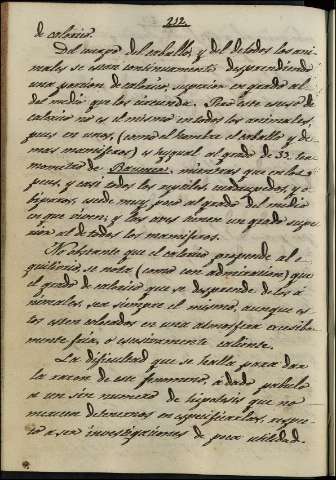 212.
de calorico.
Del cuerpo del caballo, y del de todos los ani-
males se estan continuamente desprendiendo
una porcion de calorico, superior en grado al
del medio que los circunda. Pero este exeso de
calorico no es el mismo en todos los animales,
pues en unos, (como el hombre el caballo y de-
mas mamiferos) es ygual al grado de 32. ter-
mometro de mientras que en los
peces, y casi todos los reptiles, cuadrupedos, y o-
biparos, exede muy poco al grado del medio
en que viven; y las aves tienen un grado supe-
rior al de todos los mamiferos.
No obstante que el calorico propende al e-
quilibrio, se nota (como con admiracion) que
el grado de calorico que se desprende de los a-
nimales, sea siempre el mismo, aunque es-
tos esten colocados en una atmosfera excesiba-
mente fria, o excesivamente caliente.
La dificultad que se halla para dar
la razon de este fenomeno, a dado pabulo
a un sin numero de hipotesis que no
merecen detenernos en especificarlas, respec-
to a ser investigaciones de poca utilidad.